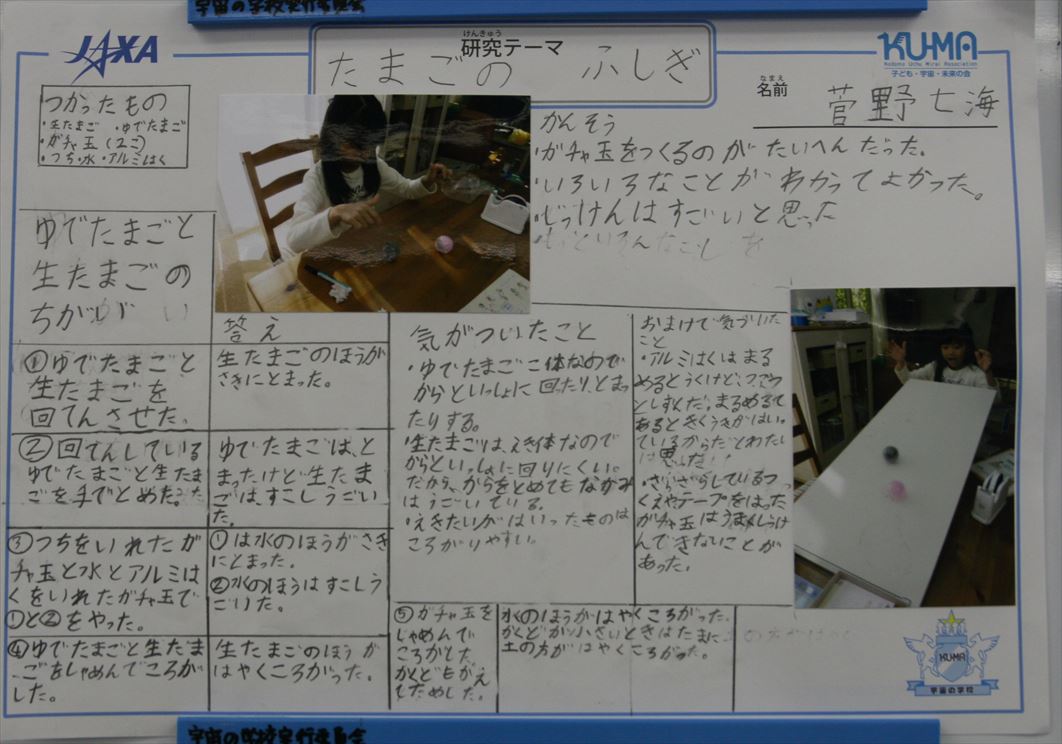 宇宙の学校実行委員会
JAXA
けんきゅう
研究テーマ
たまごの ふしぎ
KU-MA
Kodomo Uchu Mirai Association
子ども・宇宙・未来の会
なまえ
名前
菅野七海
つかったもの
・生たまご ・ゆでたまご
・ガチャ玉(2こ)
・つち・水・アルミはく
ゆでたまごと
生たまごの
ちがい
答え
①ゆでたまごと
生たまごを
回てんさせた。
生たまごのほうが
さきにとまった。
②回てんしている
ゆでたまごと生たま
ごを手でとめた。
ゆでたまごは、と
まったけど生たま
ごは、すこしうごい
た。
③つちをいれたガ
チャ玉と水とアルミは
くをいれたガチャ玉で
①と②をやった。
①は水のほうがさき
にとまった。
②水のほうはすこしう
ごいた。
④ゆでたまごと生たま
ごをしゃめんでころが
した。
生たまごのほうが
はやくころがった。
かんそう
・ガチャ玉をつくるのがたいへんだった。
・いろいろなことがわかってよかった。
・じっけんはすごいと思った
気がついたこと
・ゆでたまごこ体なので
からといっしょに回たり、とまっ
たりする。
・生たまごは、えき体なので
からといっしょに回りにくい。
だから、からをとめてもなかみ
はうごいている。
・えきたいがはいったものは
ころがりやすい。
おまけで気づいた
こと
・アルミはくはまる
めるとうくけど、
としずんだ。まるめるて
あるときくうきがはい。
ているからだとわたし
は思った!
・ざらざらしているつ
くえやテープをはった
ガチャ玉はうまくじっけ
んできないことが
あった。
⑤ガチャ玉を
しゃめんで
ころがした
かくどもかえ
てためした。
水のほうがはやくころがった。
かくどが小さいときは
土の方がはやくころがった。
KU-MA
宇宙の学校
宇宙の学校実行委員会